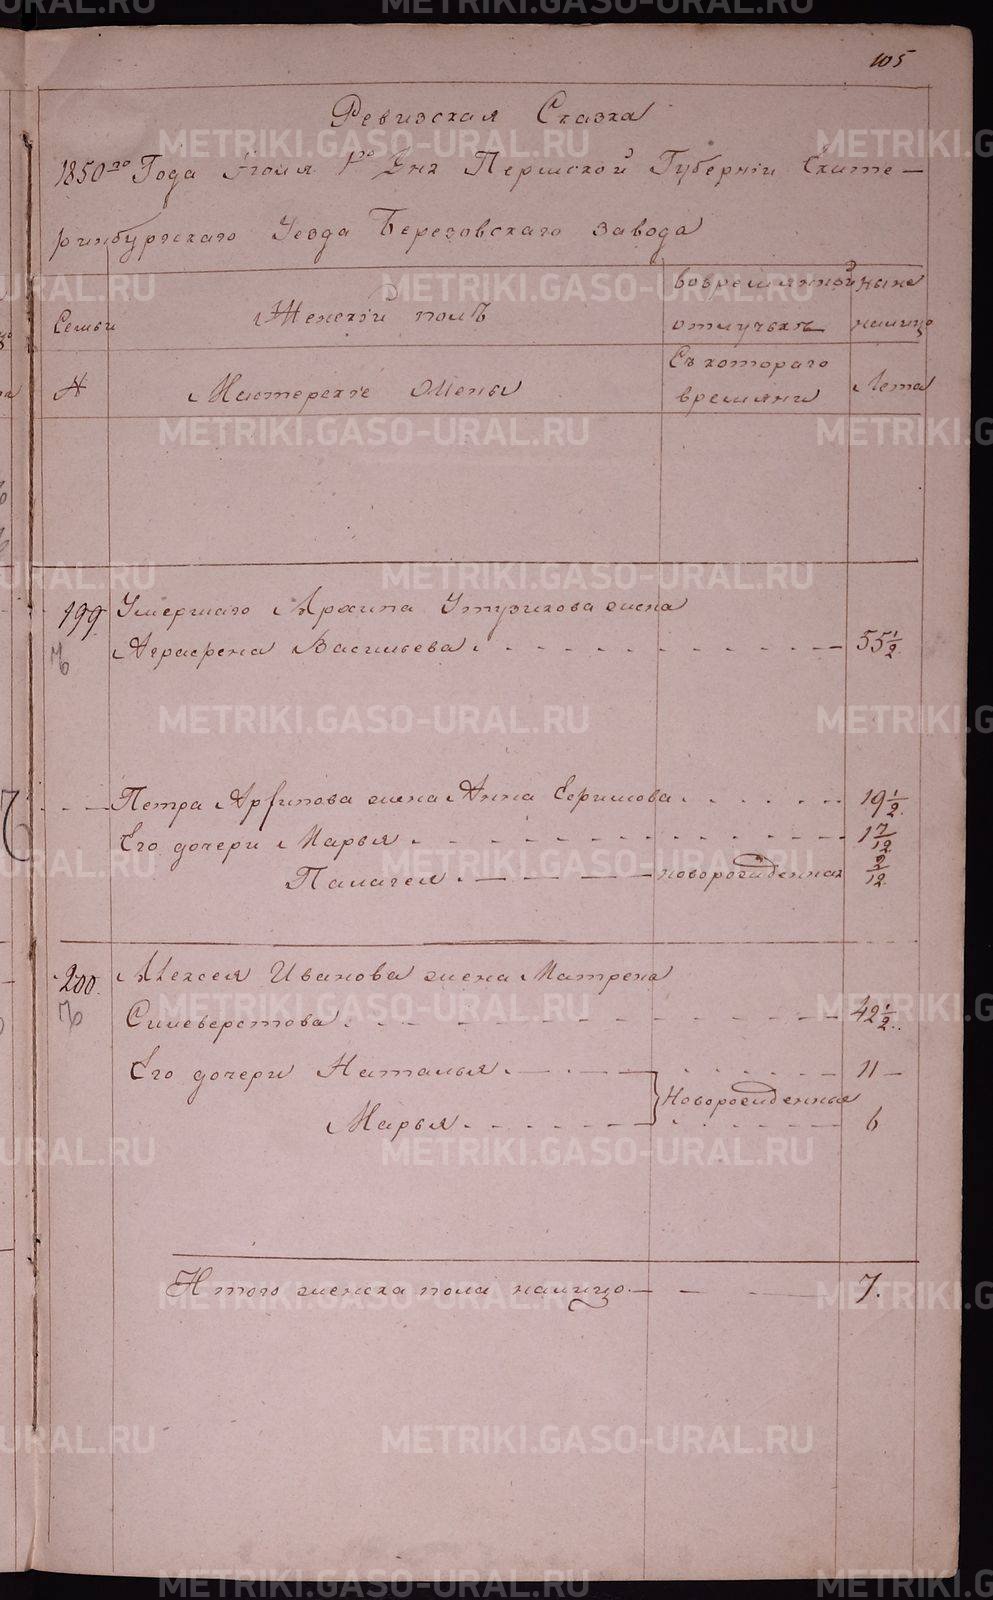 105
Ревизская Сказка
1850го Года Июля 1го Дня Пермской Губернiи Екате-
ринбургскаго Уезда Березовскаго завода
Семьи
Женскiй полъ
вовремянной
отлучькѣ
ныне
налицо
№
Мастерскiе Жены
Съ котораго
времяни
Лета
199. Умершаго Архипа Утузикова жена
Аграфена Васильева 55 1/2
Петра Архипова жена Анна Ефимова 19 1/2
Его дочери Марья 1 7/12
Палагея новорожденная 2/12
200. Алексея Иванова жена Матрена
Силеверстова 42 1/2
Его дочери Наталья 11
Новорожденныя
Марья 6
Итого женска пола налицо 7.
METRIKI.GASO-URAL.RU